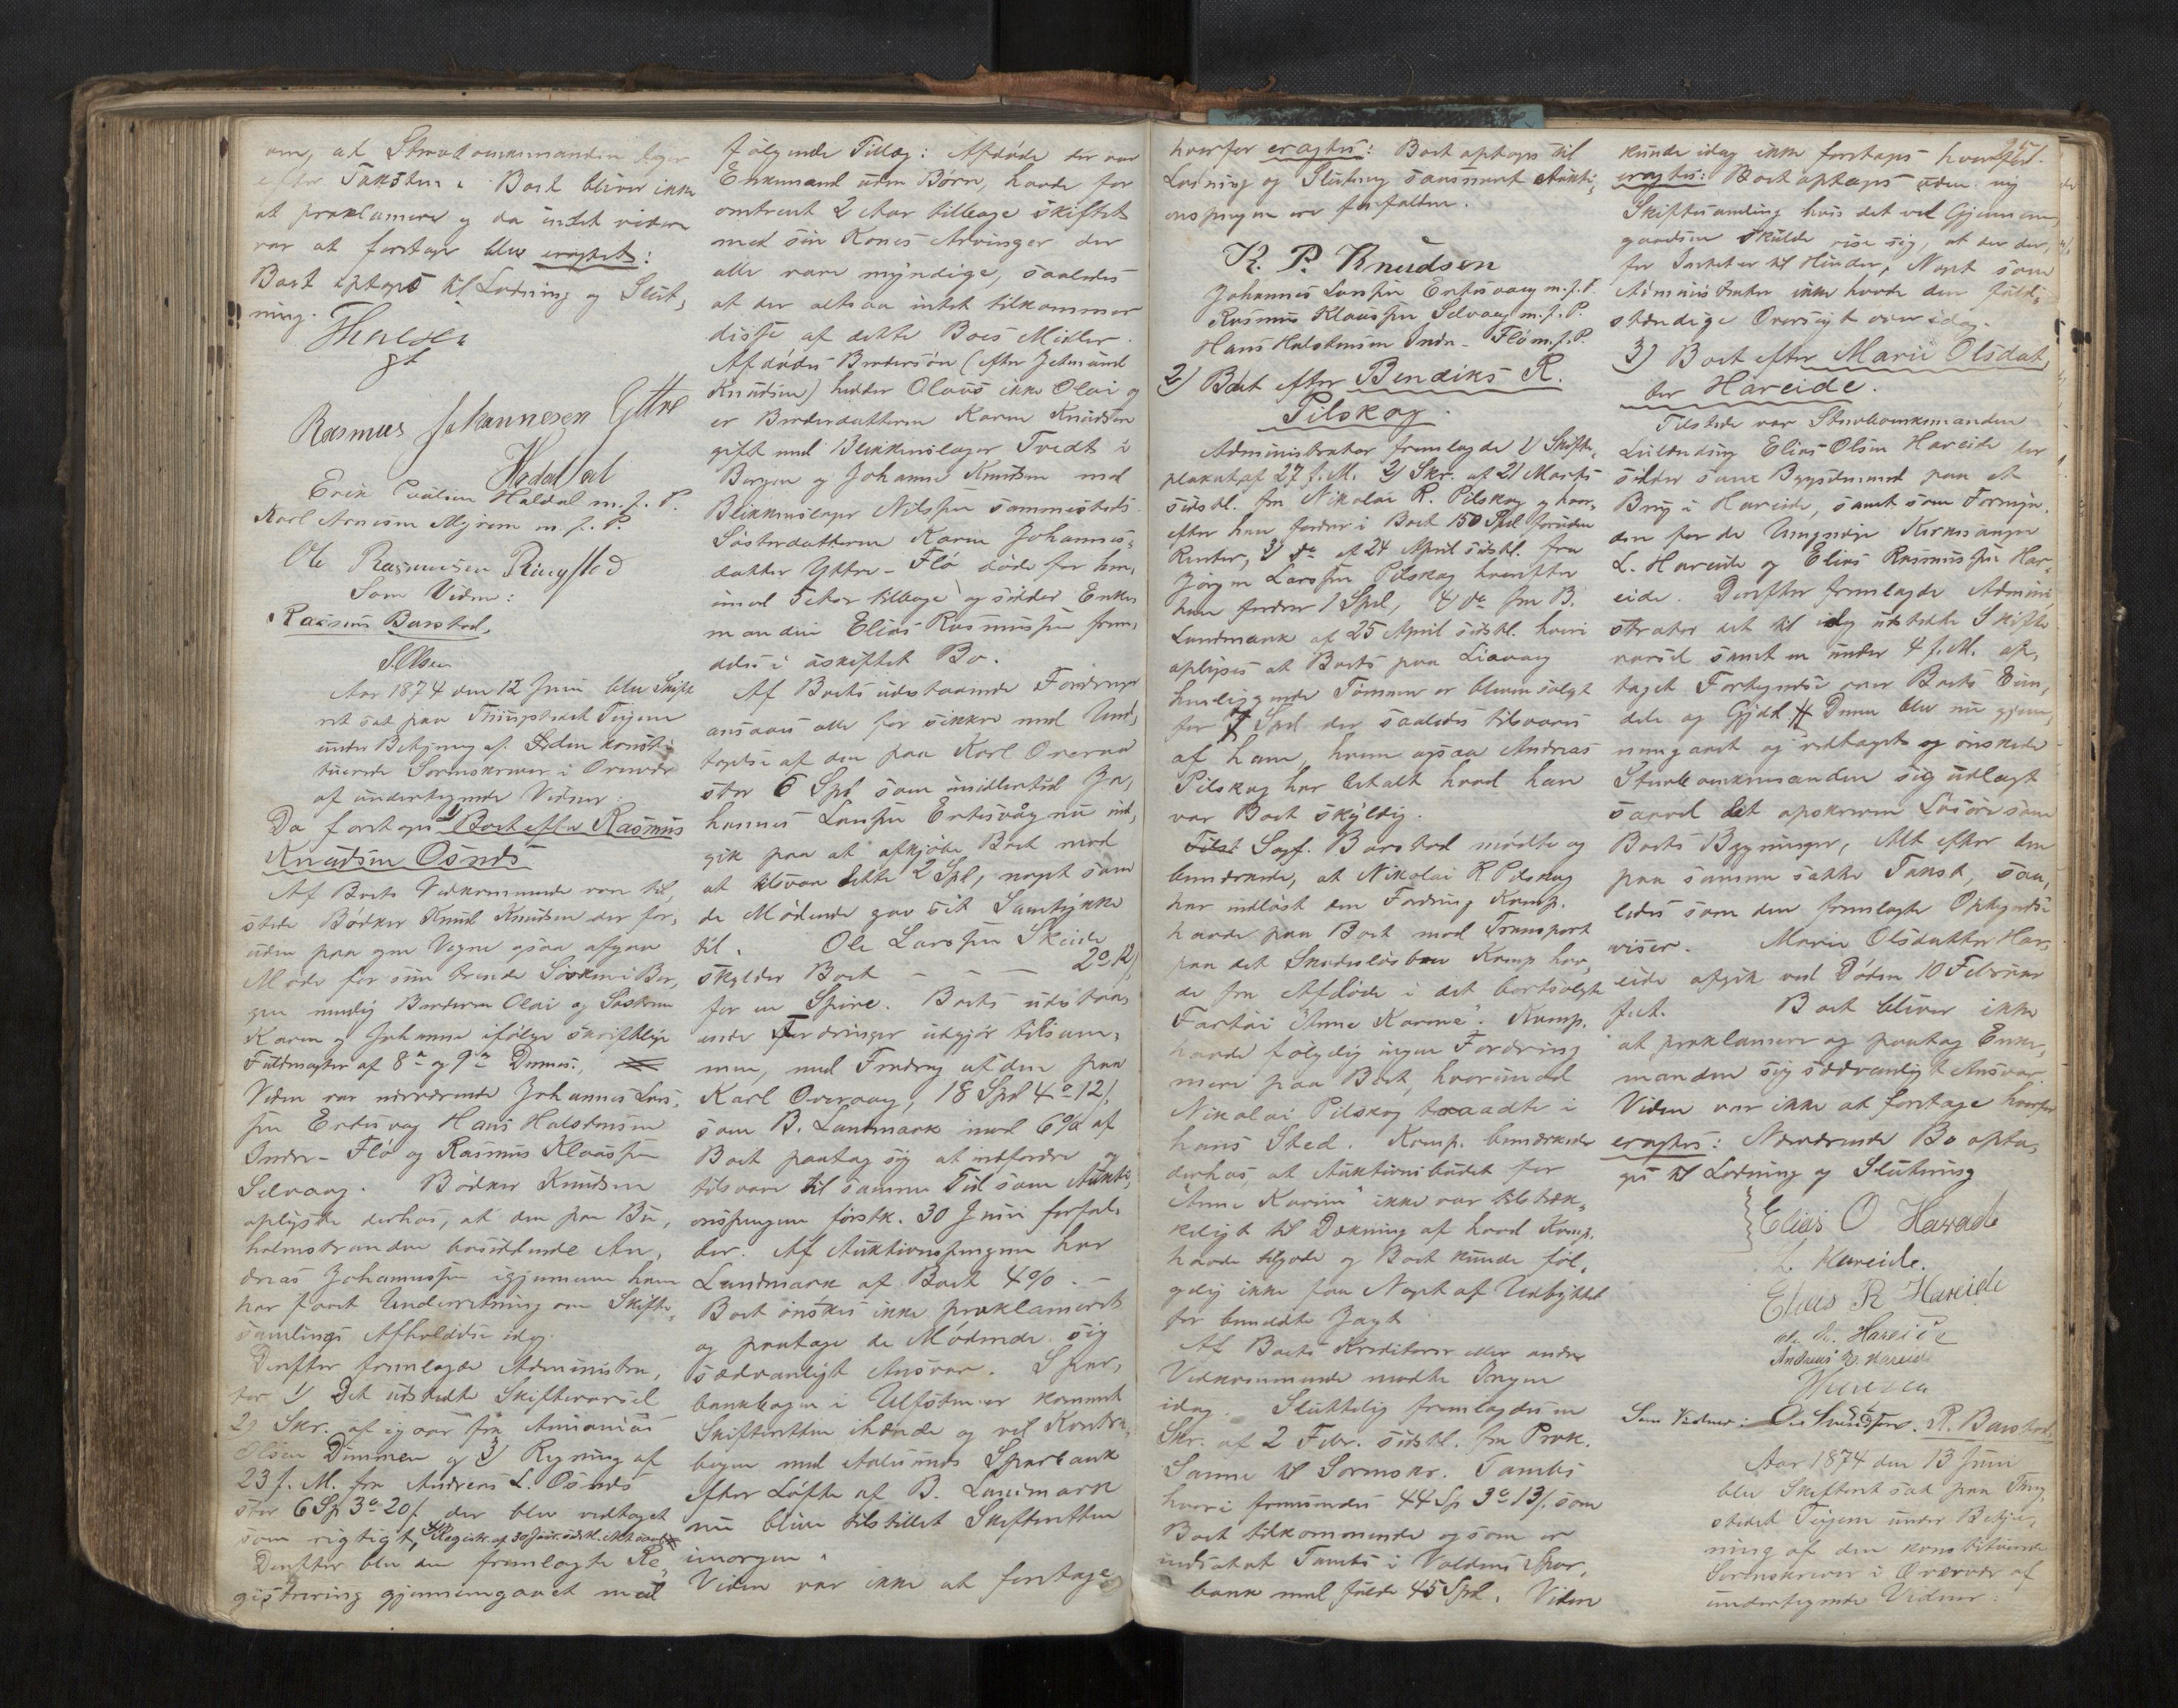 om, at Stervboenkemanden tager
efter Taksten. Boet bliver ikke
at proklamere og da intet videre
var at foretage blev eragtet:
Boet optages til Lodning og Slut-
ning.
Rasmus Johannesen Yttre
Haddal
Erik Haldal m. f. P.
Karl Arnesen Myrene m. f. P.
Ole Rasmusen Ringstad
Som Vidne:
Rasmus Barstad.
Aar 1874 den 12 Juni blev Skifte
ret sat paa Thingstedet Teigene
under Betjening af den konsti-
tuerede Sorenskriver i Overvær
af undertegnede Vidner:
Da foretoges 1) Boet efter Rasmus
Knudsen Osnes
Af Boets Vedkommende var til-
stede Bødker Knud Knudsen der for-
uden paa egne Vegne ogsaa afgav
Møde for sine trende Søskende i Ber-
gen nemlig Broderen Olai og Søstrene
Karen og Johanne ifølge skriftlige
Fuldmagter af 8de og 9de Dennes,
Viden var nærværende Johannes Lars-
sen Ertesvaag Hans Halstensen
Indre-Flø og Rasmus Klaassen
Selvaag. Bødker Knudsen
oplyste derhos, at den paa Bu-
holmstranden bosiddende An-
dreas Johannessen igjennem ham
har faaet Underretning om Skifte-
samlings Afholdelse idag.
Derefter fremlagde Administra-
tor 1) Det udstedte Skiftevarsel
2) Skr. af igaar fra Ananias
Olsen Dimmen og 3) Regning af
23 f. M. fra Andreas L. Osnes
stor 6 Sp 3 o 20 s. der blev vedtaget
som rigtigt,
Derefter blev den fremlagte Re-
gistrering gjennemgaaet med
følgende Tillæg: Afdøde der var
Enkemand uden Børn, havde for
omtrent 2 Aar tilbage skiftet
med sin Kones Arvinger der
alle vare myndige, saaledes
at der altsaa intet tilkommer
disse af dette Boes Midler.
Afdødes Brodersøn (efter Jetmund
Knudsen) hedder Olaus ikke Olai og
er Broderdatteren Karen Knudsen
gift med Blikkenslager Tvedt i
Bergen og Johanne Knudsen med
Blikkenslager Nilssen sammesteds.
Søsterdatteren Karen Johannes-
datter Yttre-Flø døde for hen-
imod 5 Aar tilbage og sidder Enke-
manden Elias Rasmussen frem-
deles i uskiftet Bo.
Af Boets udestaaende Fordringer
ansaaes alle for sikkre med Und-
tagelse af den paa Karl Overaa
stor 6 Spd som imidlertid Jo-
hannes Larssen Ertesvåg nu ind-
gik paa at afkjøbe Boet mod
at tilsvare dette 2 Spd, noget som
de Mødende gav sit Samtykke
til. Ole Larssen Skeide
skylder Boet - - - 2 o 12 s
for en Spire. Boets udestaa-
ende Fordringer udgjør tilsam-
men, med Fradrag af den paa
Karl Overaag, 18 Spd 4 o 12 s.
som B. Landmark imod 6 % af
Boet paatog sig at indfordre og
tilsvare til samme Tid som Aukti-
onspengene førstk. 30 Juni forfal-
der. Af Auktionspengene har
Landmark af Boet 4 %. -
Boet ønskes ikke proklameret
og paatage de Mødende sig
sædvanligt Ansvar. Spar-
bankbogen i Ulfstenen kommet
Skifteretten ihænde og vil Kontra-
bogen med Aalesunds Sparbank
efter Løfte af B. Landmark
nu blive tilstillet Skifteretten
imorgen.
Viden var ikke at foretage
hvorfor eragtes: Boet optages til
Lodning og Slutning saasnart Aukti-
onspengene ere forfaldne.
K. P. Knudsen
Johannes Larssen Ertesvaag m. f. P.
Rasmus Klaassen Selvaag m. f. P.
Hans Halstensen Indre-Flø m. f. P.
2) Boet efter Bendiks R.
Pilskog.
Administrator fremlagde 1) Skifte-
plakat af 27 f. M. 2) Skr. af 21 Marts
sidstl. fra Nikolai R. Pilskog hvor-
efter han fordrer i Boet 150 Spd foruden
Renter, 3) do af 24 April sidstl. fra
Jørgen Larssen Pilskog hvorefter
han fordrer 1 Spd, 4 do fra B.
Landmark af 25 April sidstl. hvori
oplyses at Boets paa Liavaag
henliggende Tømmer er bleven solgt
for 7 Spd der saaledes tilsvares
af ham, hvem ogsaa Andreas
Pilskog har betalt hvad han
var Boet skyldig.
Sagf. Barstad mødte og
bemærkede, at Nikolai R Pilskog
har indløst den Fordring Komp.
havde paa Boet mod Transport
paa det Skadesløsbrev Komp hav-
de fra Afdøde i det bortsolgte
Fartøi "Anne Karine". Komp.
havde følgelig ingen Fordring
mere paa Boet, hvorimod
Nikolai Pilskog traadte i
hans Sted. Komp. bemærkede
derhos, at Auktionsbudet for
"Anne Karine" ikke var tilstræk-
keligt til Dækning af hvad Komp.
havde tilgode og Boet kunde føl-
gelig ikke faa Noget af Udbyttet
for bemeldte Jagt.
Af Boets Kreditorer eller andre
Vedkommende mødte Ingen
idag. Sluttelig fremlagdes en
Skr. af 2 Febr. sidstl. fra Prok.
Sanne til Sorenskr. Tambs
hvori fremsendes 44 Sp 3 o 13 s. som
Boet tilkommende og som er
indsat af Tambs i Voldens Spar-
bank med fulde 45 Spd. Viden
kunde idag ikke foretages hvorfor
eragtes: Boet optages uden ny
Skiftesamling hvis det ved Gjennem-
gaaelsen skulde vise sig, at der der-
for Intet er til Hinder, Noget som
Administrator ikke havde den fuld-
stændige Oversigt over idag.
3) Boet efter Marie Olsdat-
ter Hareide.
Tilstede var Stervboenkemanden
Elias Olsen Hareide der
sidder som Bygselmand paa et
Brug i Hareide, samt som Formyn-
der for de Umyndige Kirkesanger
L. Hareide og Elias Rasmussen Har-
eide. Derefter fremlagde Admini-
strator det til idag udstedte Skifte-
varsel samt en under 4 f. M. op-
taget Fortegnelse over Boets Eien-
dele og Gjæld. Denne blev nu gjen-
nemgaaet og vedtaget og ønskede
Stervboenkemanden sig udlagt
saavel det opskrevne Løsøre som
Boets Bygninger, Alt efter den
paa samme satte Takst, saa-
ledes som den fremlagte Optegnelse
viser. Marie Olsdatter Har-
eide afgik ved Døden 10 Februar
f. A. Boet bliver ikke
at proklamere og paatog Enke-
manden sig sædvanligt Ansvar.
Viden var ikke at foretage hvorfor
eragtes: Nærværende Bo opta-
ges til Lodning og Slutning
Elias O Hareide
L. Hareide.
Elias R Hareide
Hareide
Andreas Hareide
Som Vidner: R. Barstad.
Aar 1874 den 13 Juni
blev Skifteret sat paa Thing-
stedet Teigene under Betje-
ning af den konstituerede
Sorenskriver i Overvær af
undertegnede Vidner: